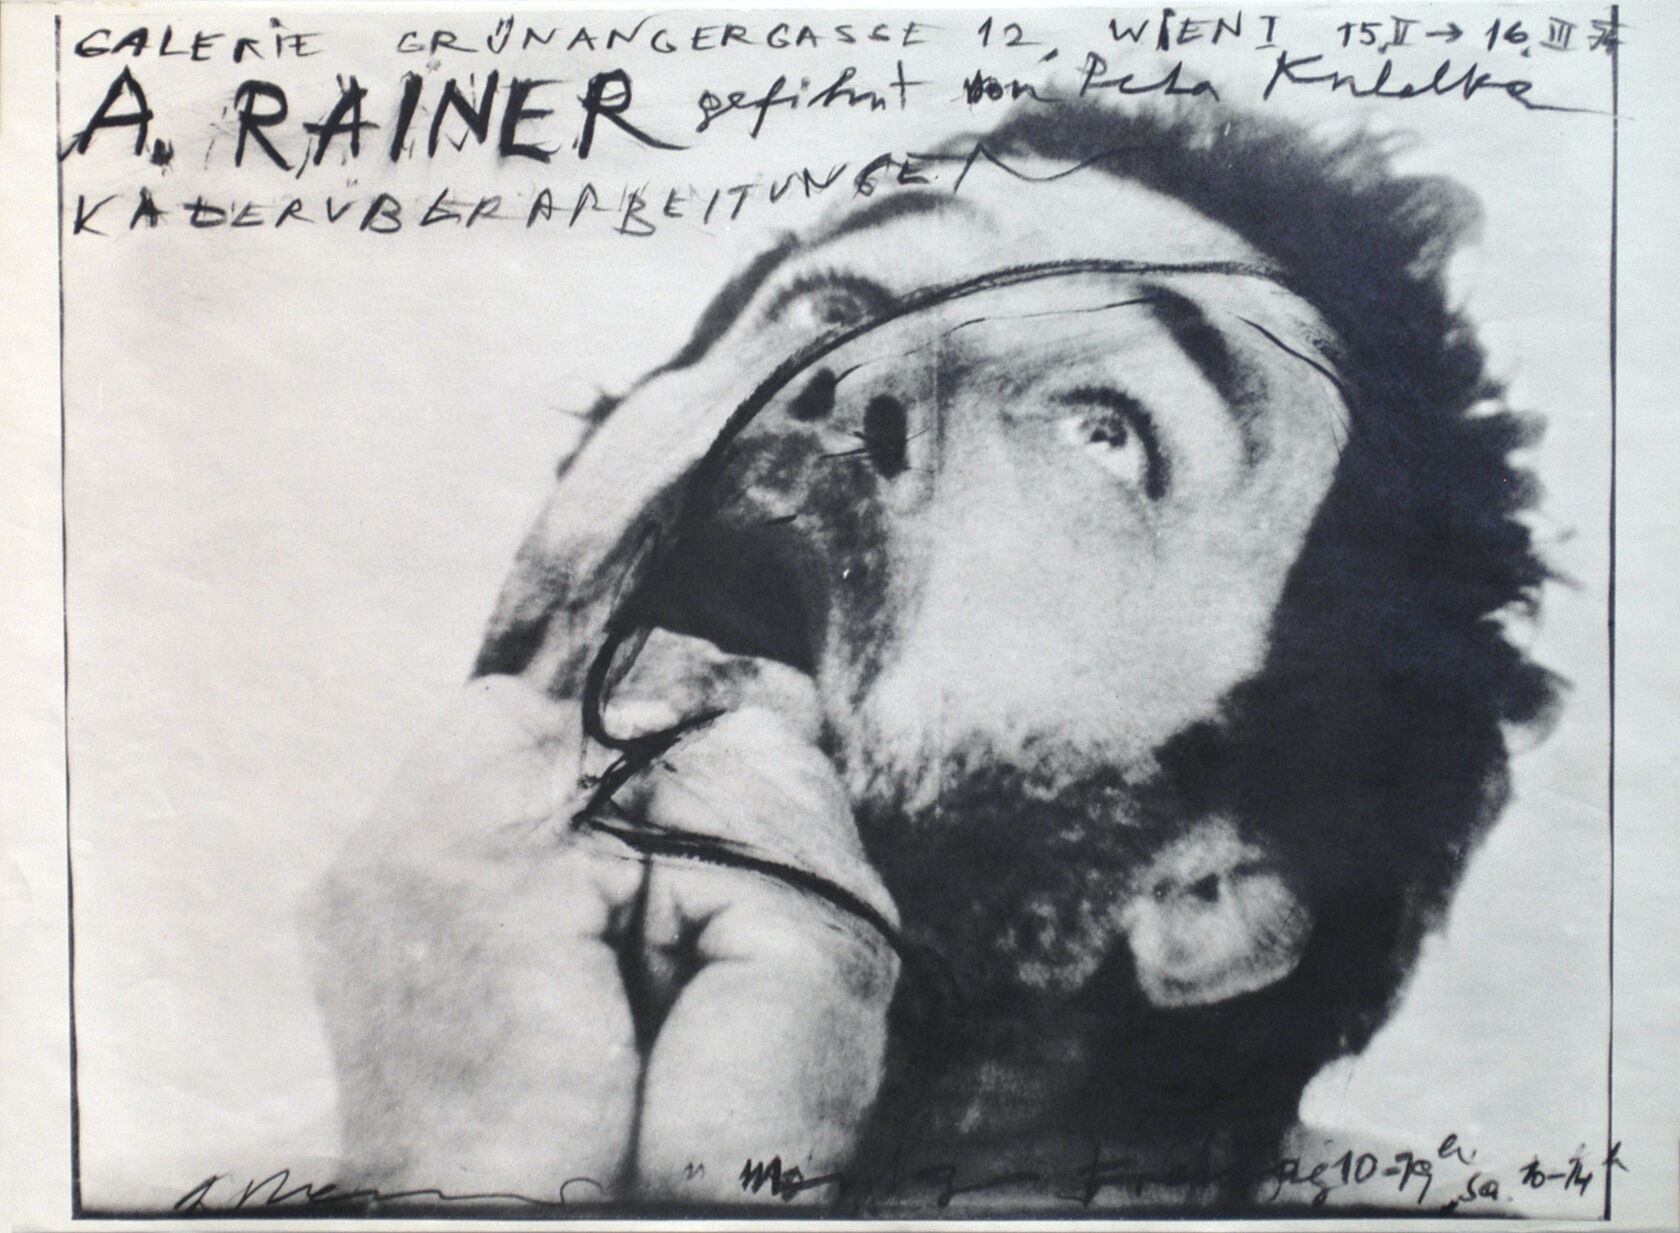 GALERIE GRÜNANGERGASSE 12, WIEN I 15.II → 16.III
A. RAINER gefilmt von Peter Kubelka
KADERÜBERARBEITUNGEN
10-19h. Sa. 10-14h